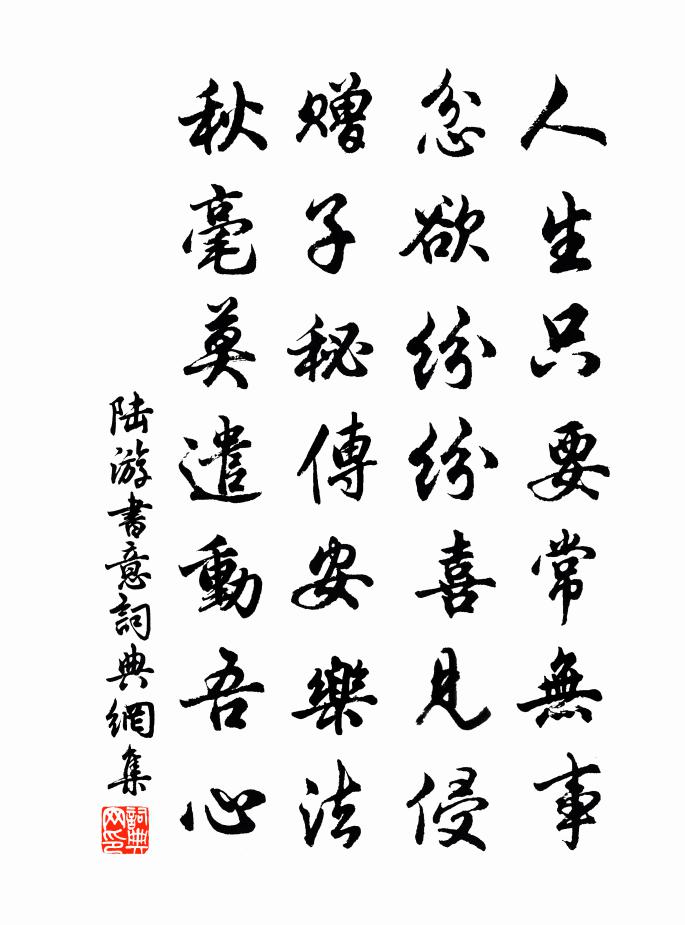 人生只要常無事
忿欲紛紛喜見侵
贈子秘傳安樂法
秋毫莫遣動吾心
陆游書意詞典網集
詞典网印